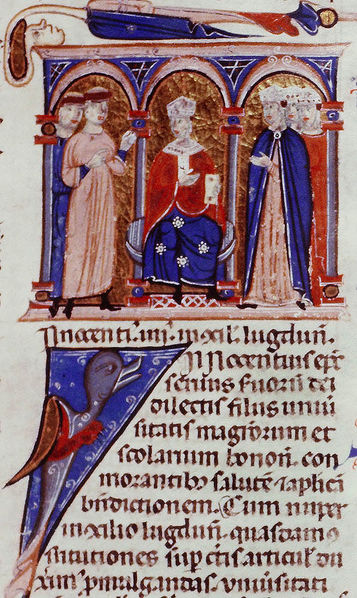 Innocenti. iiij. in ɔcil. lugdun̄.
Innocentius ep̄s
seruus seruoꝝ dei
dilectis filiis uniuer
sitatis magr̄orum et
scolarium bonon̄. com
morantibꝰ salutē ⁊ aplicā
bn̄dictionem. Cum nuper
in ɔcilio lugdun̄. quasdam ꝯ
stitutiones sup̄ c̄tis articul' du
xim̄ p̄mulgandas. uniūsitati